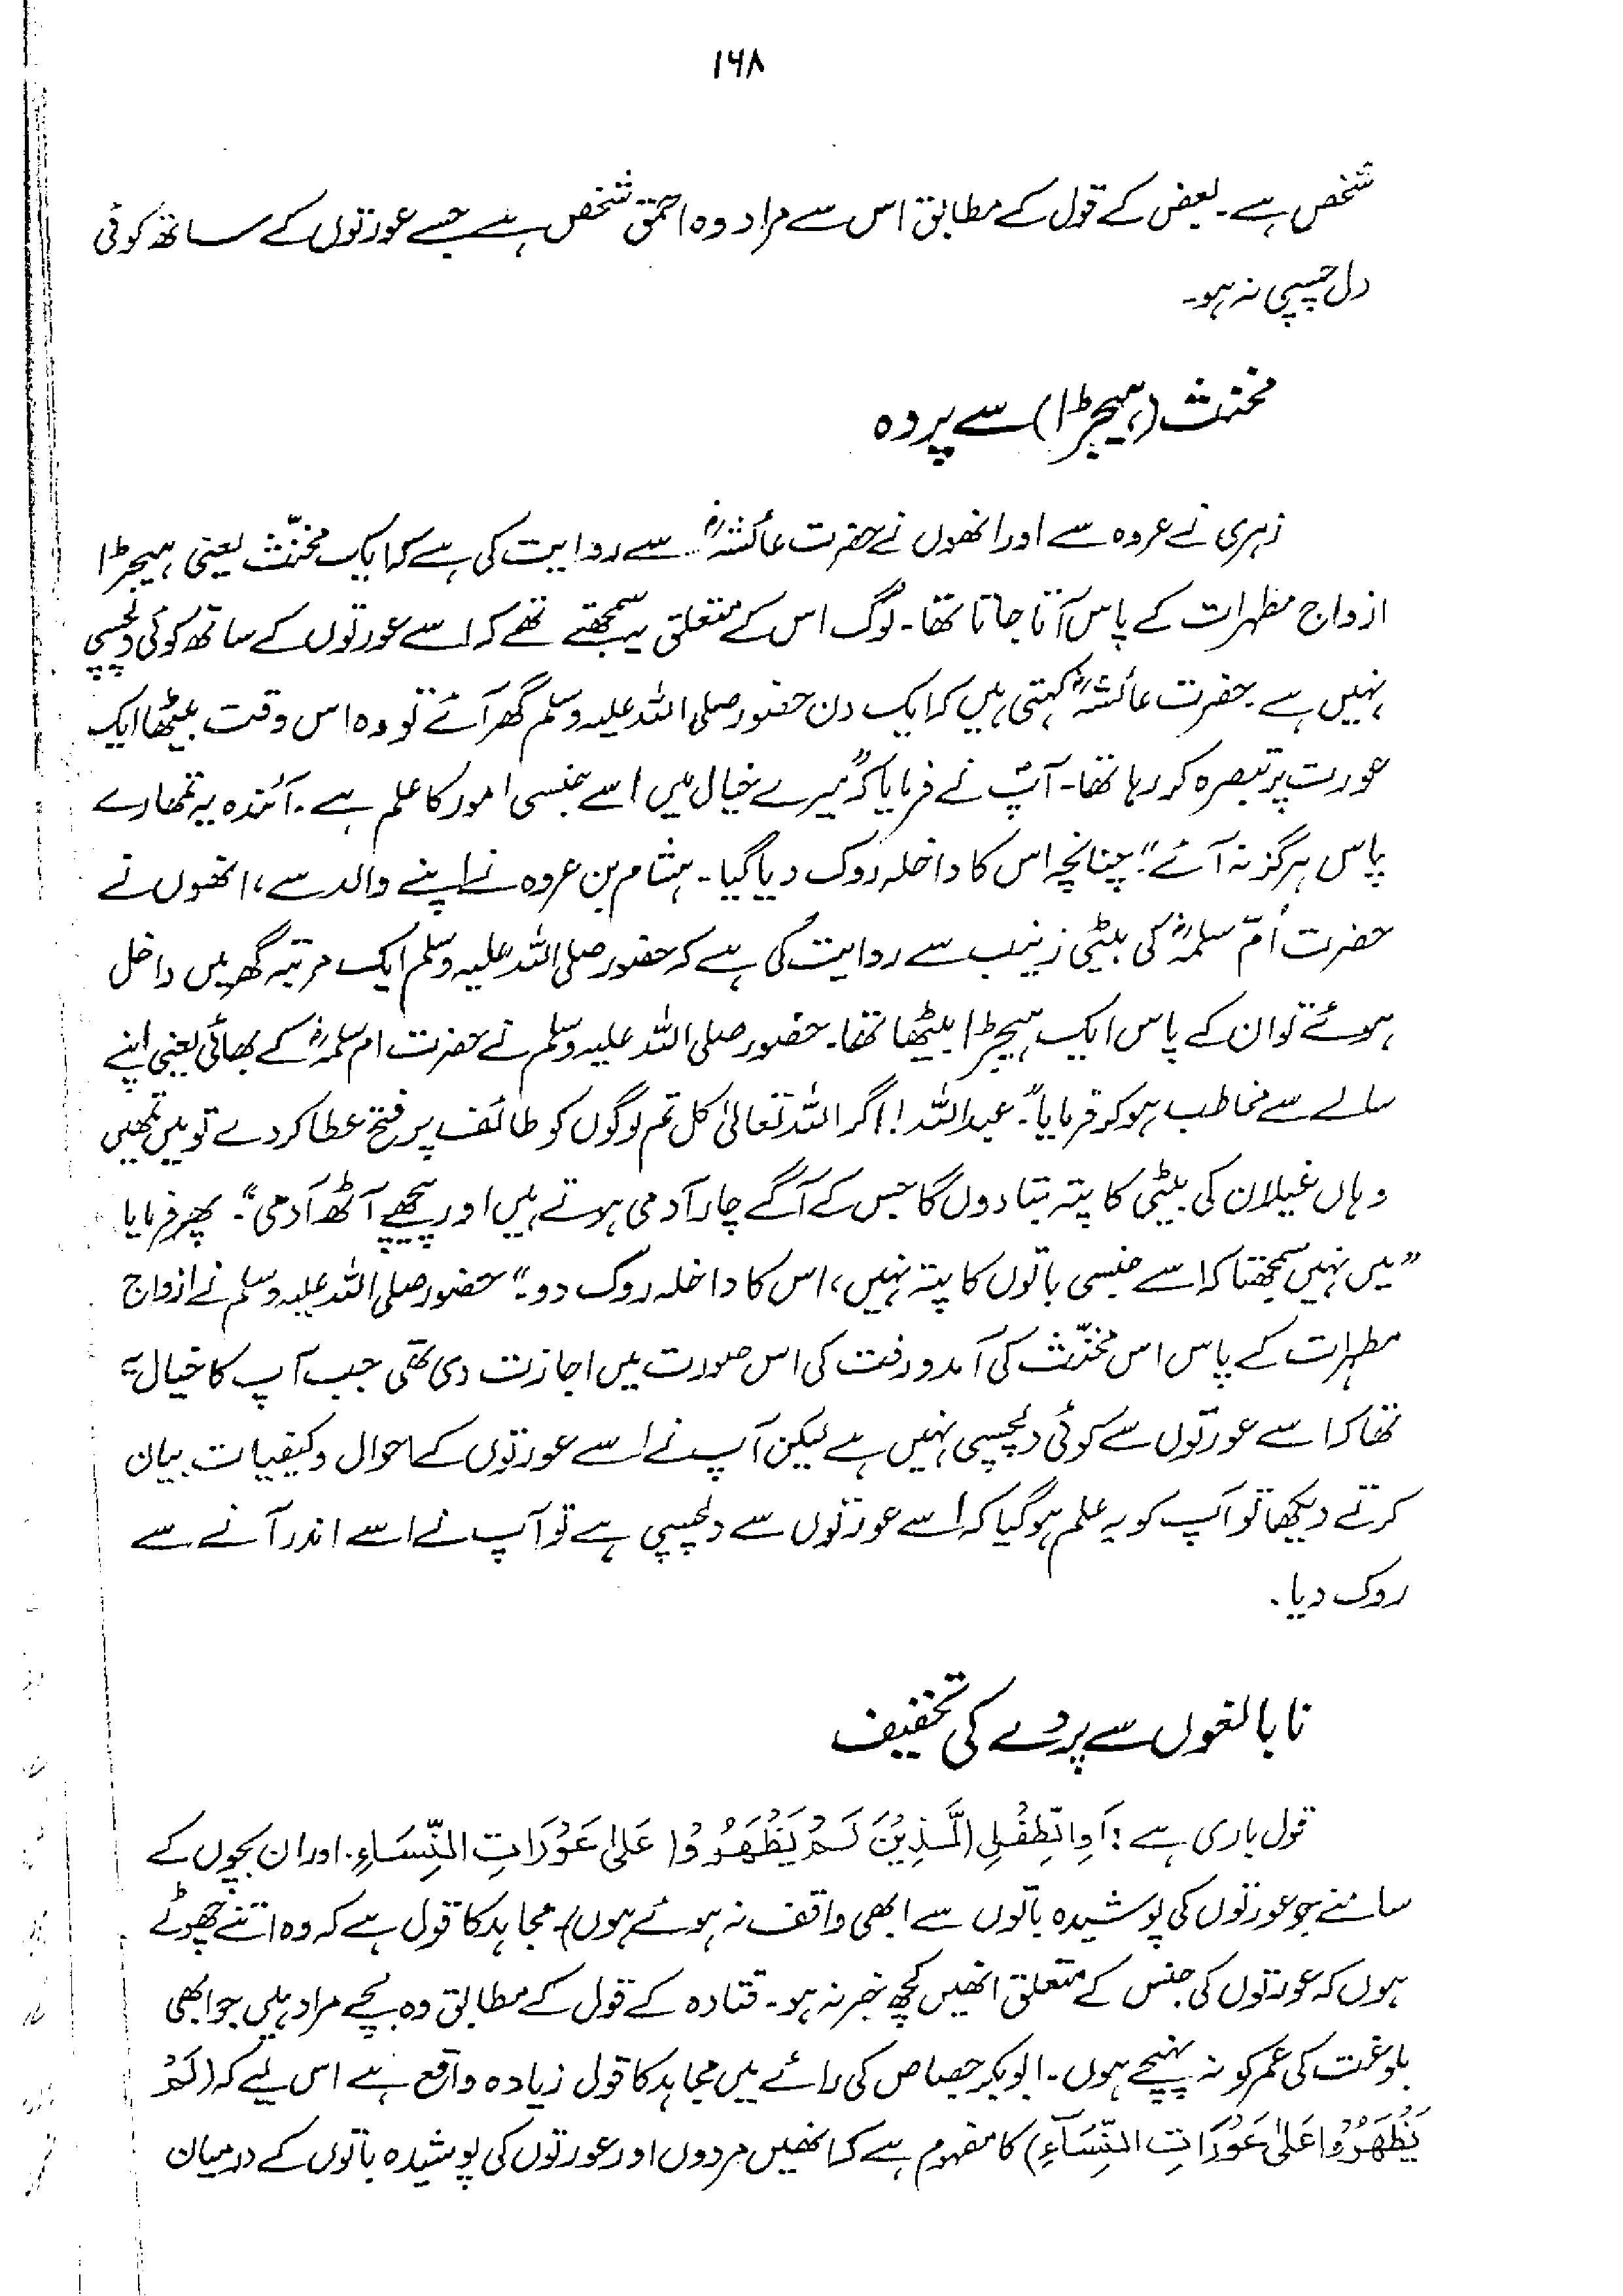 ۱۶۸
شخص ہے۔ بعض کے قول کے مطابق اس سے مراد وہ احمق شخص ہے جسے عورتوں کے ساتھ کوئی
دل چسپی نہ ہو۔
مخنث (ہیجڑا) سے پردہ
زہری نے عروہ سے اور انھوں نے حضرت عائشہؓ سے روایت کی ہے کہ ایک مخنّث یعنی ہیجڑا
ازواج مطہرات کے پاس آتا جاتا تھا۔ لوگ اس کے متعلق یہ سمجھتے تھے کہ اسے عورتوں کے ساتھ کوئی دلچسپی
نہیں ہے۔ حضرت عائشہؓ کہتی ہیں کہ ایک دن حضور صلی اللہ علیہ وسلم گھر آئے تو وہ اس وقت بیٹھا ایک
عورت پر تبصرہ کر رہا تھا۔ آپؐ نے فرمایا کہ "میرے خیال میں اسے جنسی امور کا علم ہے۔ آئندہ یہ تمھارے
پاس ہرگز نہ آئے"؛ چنانچہ اس کا داخلہ روک دیا گیا۔ ہشام بن عروہ نے اپنے والد سے، انھوں نے
حضرت اُمّ سلمہؓ کی بیٹی زینب سے روایت کی ہے کہ حضور صلی اللہ علیہ وسلم ایک مرتبہ گھر میں داخل
ہوئے تو ان کے پاس ایک ہیجڑا بیٹھا تھا۔ حضور صلی اللہ علیہ وسلم نے حضرت ام سلمہؓ کے بھائی یعنی اپنے
سالے سے مخاطب ہو کر فرمایا: "عبداللہ! اگر اللہ تعالیٰ کل تم لوگوں کو طائف پر فتح عطا کر دے تو میں تمھیں
وہاں غیلان کی بیٹی کا پتہ بتا دوں گا جس کے آگے چار آدمی ہوتے ہیں اور پیچھے آٹھ آدمی"۔ پھر فرمایا
"میں نہیں سمجھتا کہ اسے جنسی باتوں کا پتہ نہیں، اس کا داخلہ روک دو۔" حضور صلی اللہ علیہ وسلم نے ازواج
مطہرات کے پاس اس مخنّث کی آمد و رفت کی اس صورت میں اجازت دی تھی جب آپ کا خیال یہ
تھا کہ اسے عورتوں سے کوئی دلچسپی نہیں ہے لیکن آپ نے اسے عورتوں کے احوال و کیفیات بیان
کرتے دیکھا تو آپ کو یہ علم ہو گیا کہ اسے عورتوں سے دلچسپی ہے تو آپ نے اسے اندر آنے سے
روک دیا۔
نابالغوں سے پردے کی تخفیف
قول باری ہے: اَوِ الطِّفْلِ الَّذِیْنَ لَمْ یَظْهَرُوْا عَلیٰ عَوْرَاتِ النِّسَاءِ. اور ان بچوں کے
سامنے جو عورتوں کی پوشیدہ باتوں سے ابھی واقف نہ ہوئے ہوں)۔ مجاہد کا قول ہے کہ وہ اتنے چھوٹے
ہوں کہ عورتوں کی جنس کے متعلق انھیں کچھ خبر نہ ہو۔ قتادہ کے قول کے مطابق وہ بچے مراد ہیں جو ابھی
بلوغت کی عمر کو نہ پہنچے ہوں۔ ابوبکر جصاص کی رائے میں مجاہد کا قول زیادہ واقع ہے اس لیے کہ (لَمْ
یَظْهَرُوْا عَلیٰ عَوْرَاتِ النِّسَآءِ) کا مفہوم ہے کہ انھیں مردوں اور عورتوں کی پوشیدہ باتوں کے درمیان